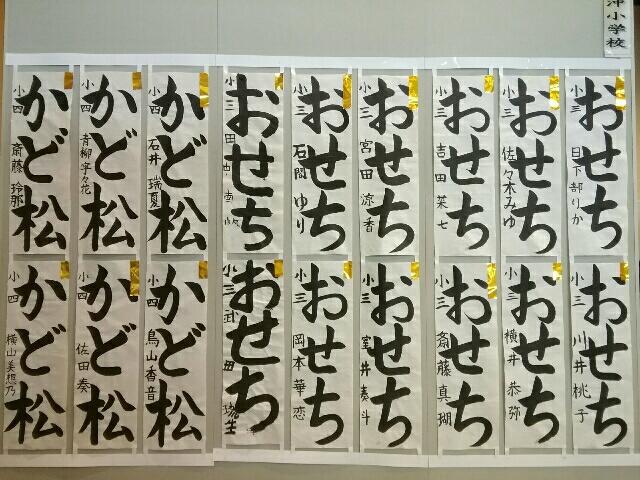 沖小学校
おせち
小三 日下部りか
おせち
小三 佐々木みゆ
おせち
小三 吉田菜七
おせち
小三 宮田涼香
おせち
小三 石関ゆり
おせち
小三
かど松
小四 石井瑞真
かど松
小四 青柳寧々花
かど松
小四 斎藤玲那
おせち
小三 川井桃子
おせち
小三 横井恭弥
おせち
小三 斎藤真瑚
おせち
小三 室井奏斗
おせち
小三 岡本華恋
おせち
小三 武田
かど松
小四 鳥山香音
かど松
小四 佐田奏
かど松
小四 横山美想乃